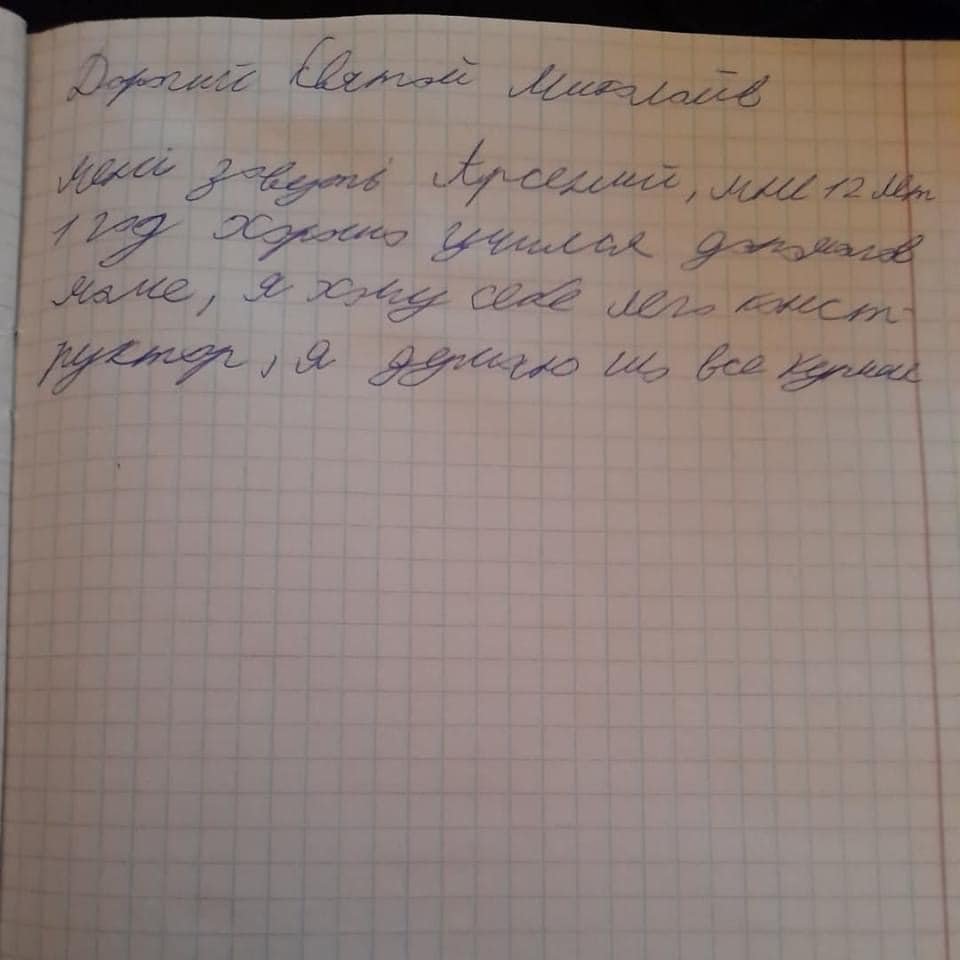 Дорогий Святой Миколайв
мені звуть Арсений, мне 12 лет
1 год хорошо учился допомогав
маме, я хочу себе лего конст-
руктор, я думаю що все